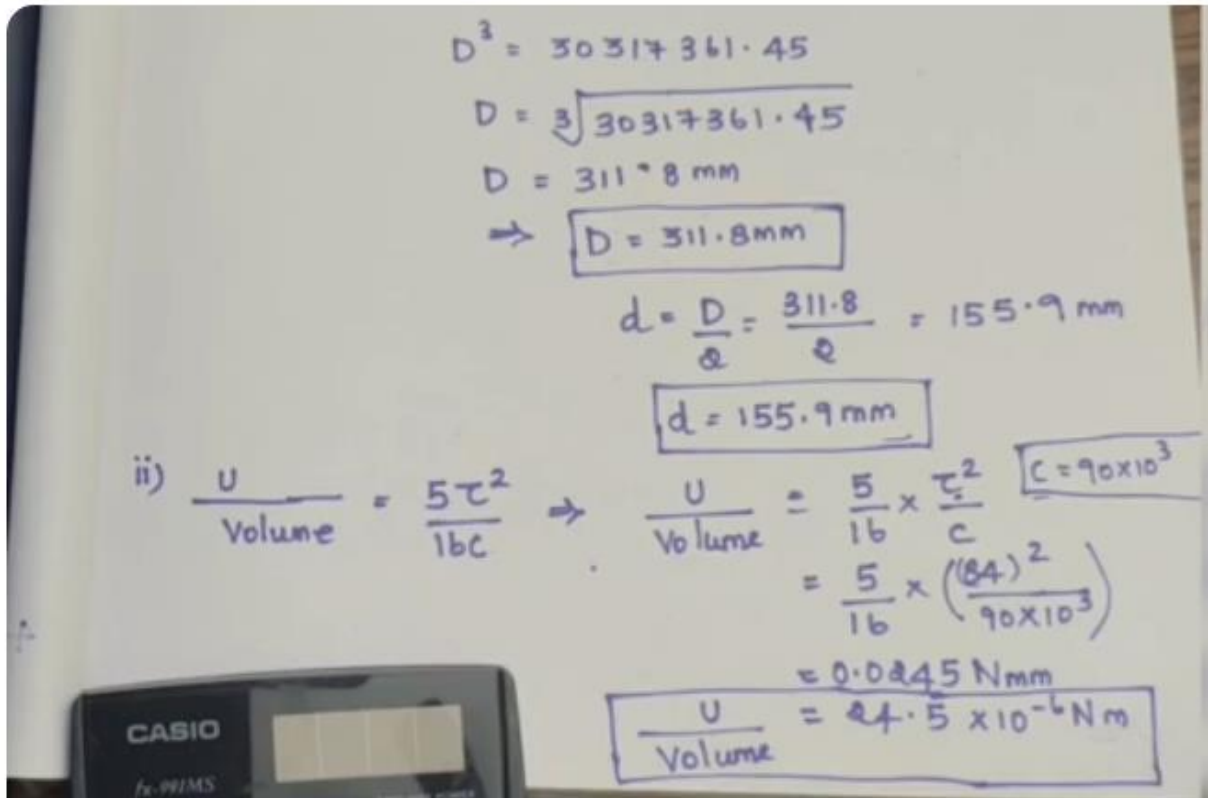 D³ = 30317361.45
D = ∛30317361.45
D = 311.8 mm
⇒ D = 311.8mm
d = D/2 = 311.8/2 = 155.9 mm
d = 155.9 mm
ii) U/Volume = 5τ²/16C ⇒ U/Volume = 5/16 × τ²/C C = 90×10³
= 5/16 × ((84)²/90×10³)
= 0.0245 Nmm
U/Volume = 24.5 ×10⁻⁶ Nm
CASIO
fx-991MS